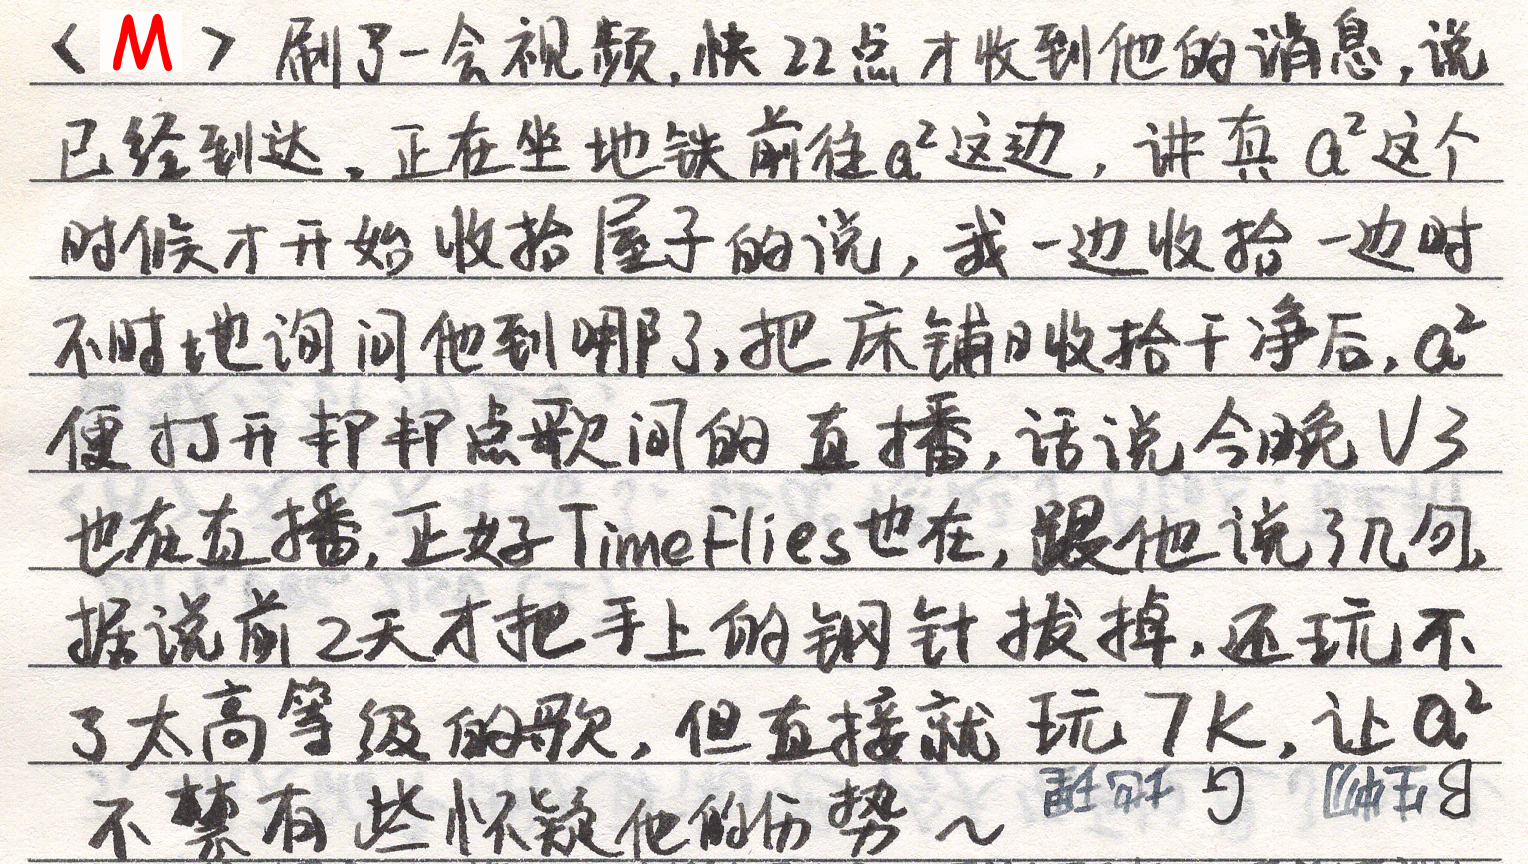 < M > 刷了一会视频,快22点才收到他的消息,说
已经到达,正在坐地铁前往a²这边,讲真a²这个
时候才开始收拾屋子的说,我一边收拾一边时
不时地询问他到哪了,把床铺收拾干净后,a²
便打开邦邦点歌间的直播,话说今晚V3
也在直播,正好TimeFlies也在,跟他说了几句,
据说前2天才把手上的钢针拔掉,还玩不
了太高等级的歌,但直接就玩7K,让a²
不禁有些怀疑他的伤势~